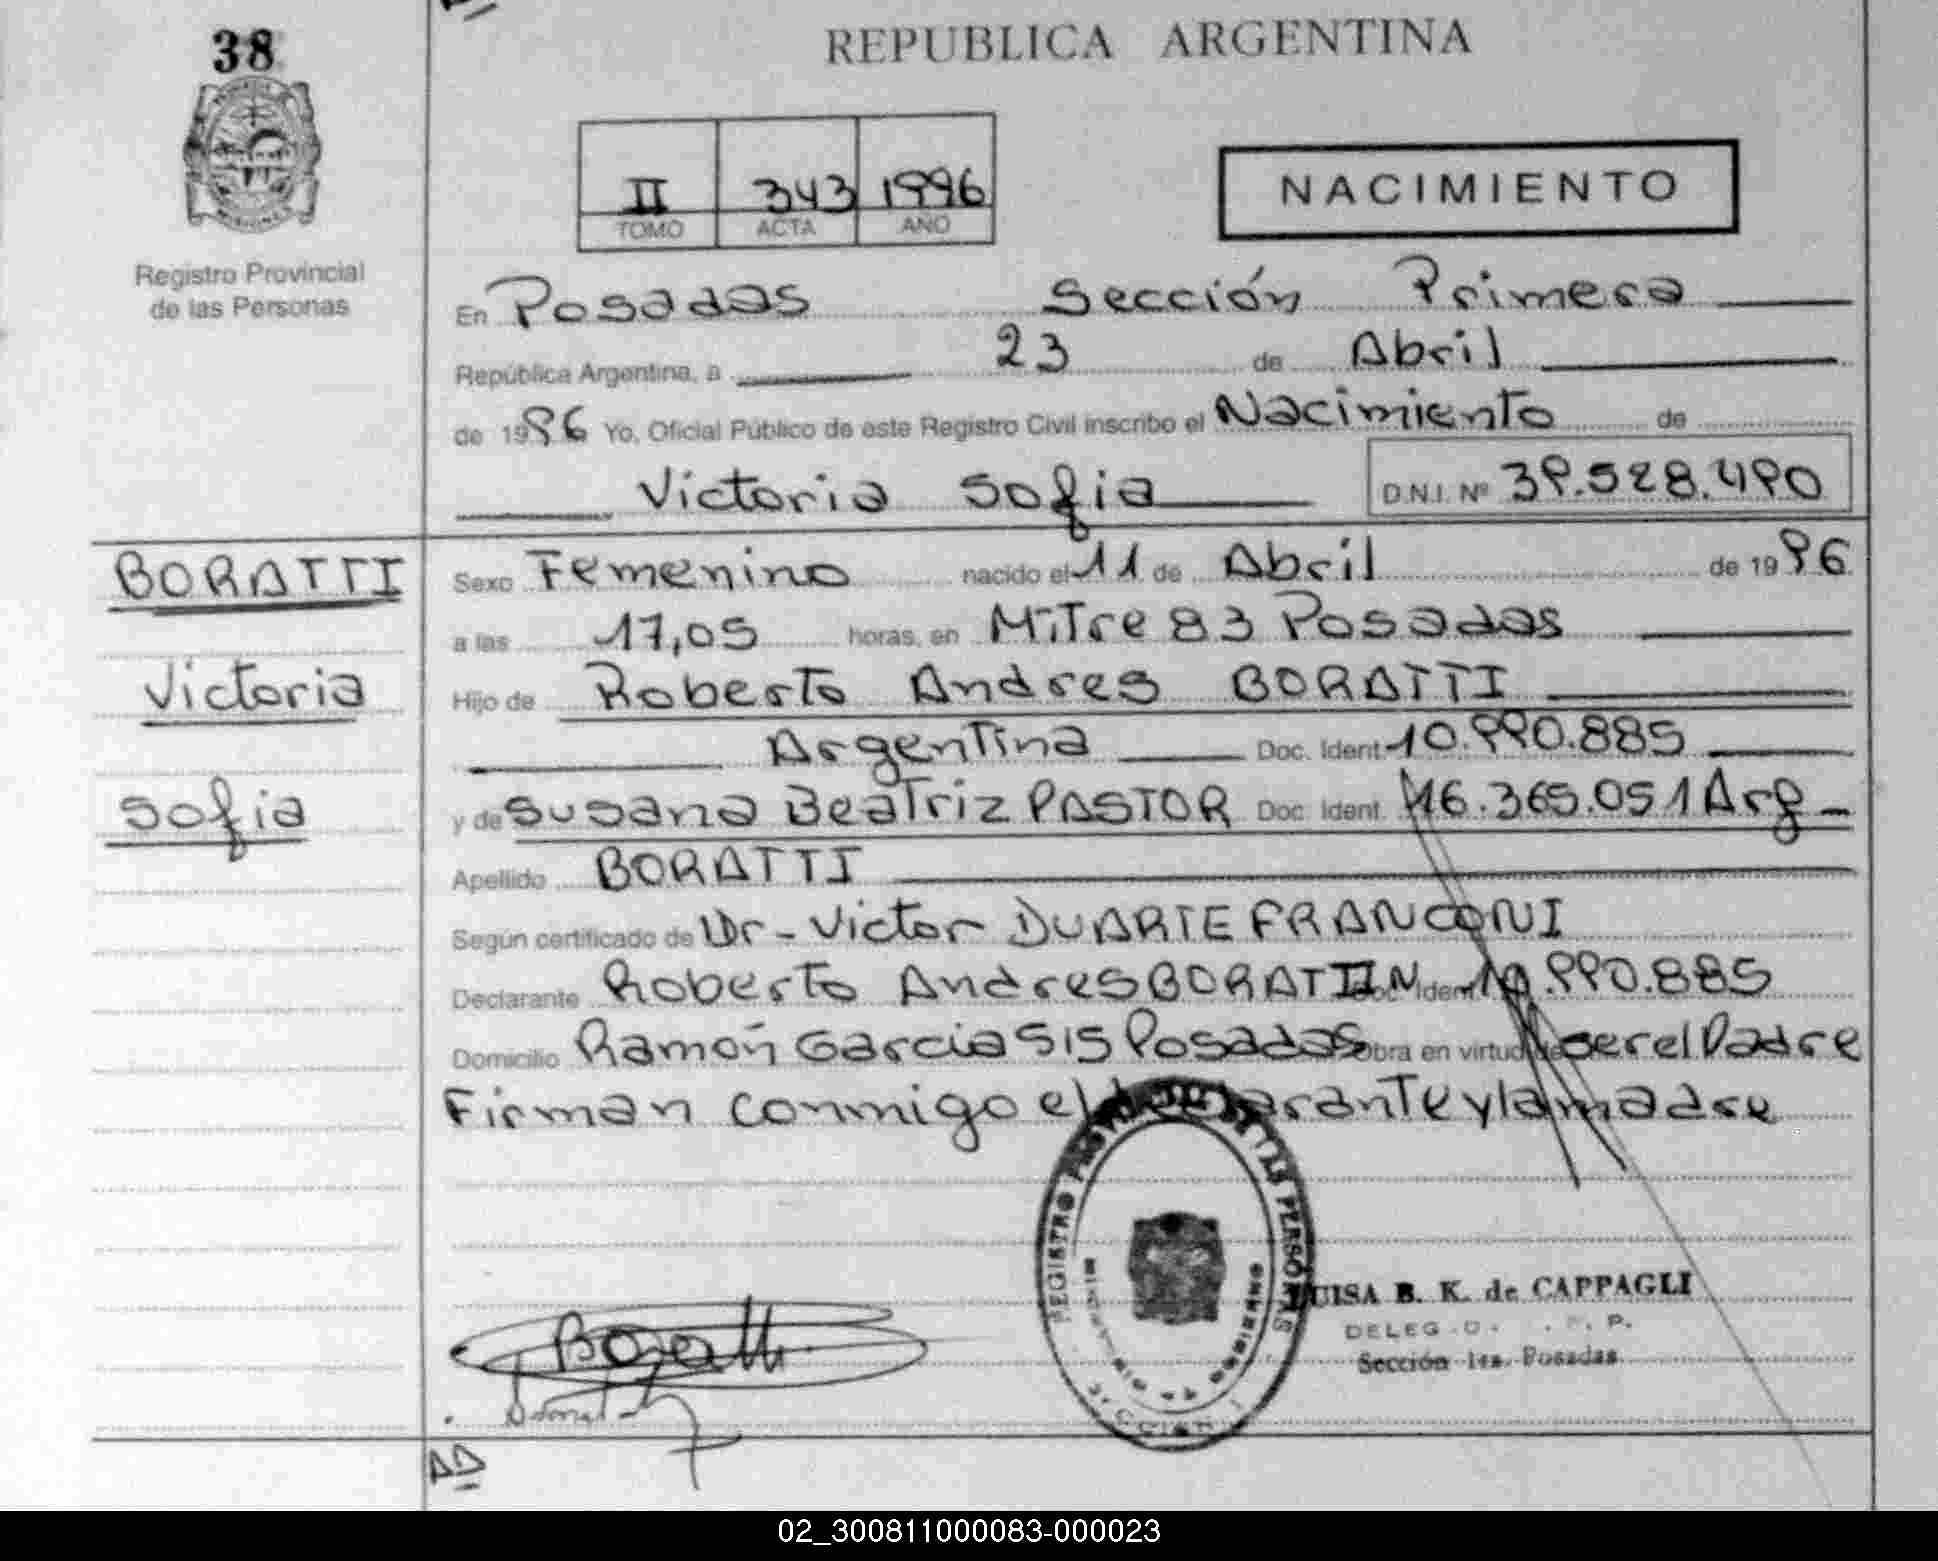 38
REPUBLICA ARGENTINA
II 343 1996
TOMO ACTA AÑO
NACIMIENTO
Registro Provincial
de las Personas
En Posadas Sección Primera
República Argentina, a 23 de Abril
de 1996 Yo, Oficial Público de este Registro Civil inscribo el Nacimiento de
Victoria Sofia D.N.I. Nº 39.528.490
BORATTI
Victoria
Sofia
Sexo Femenino nacido el 11 de Abril de 1996
a las 17,05 horas, en Mitre 83 Posadas
Hijo de Roberto Andres BORATTI
Argentina Doc. Ident. 10.990.885
y de Susana Beatriz PASTOR Doc. Ident. 16.365.051 Arg
Apellido BORATTI
Según certificado de Dr - Victor DUARTE FRANCONI
Declarante Roberto Andres BORATTI Doc. Ident. 10.990.885
Domicilio Ramón Garcia 515 Posadas Obra en virtud de ser el Padre
Firman conmigo el declarante y la madre
REGISTRO PROVINCIAL DE LAS PERSONAS
LUISA B. K. de CAPPAGLI
Sección 1ra. Posadas
Boratti
02_300811000083-000023